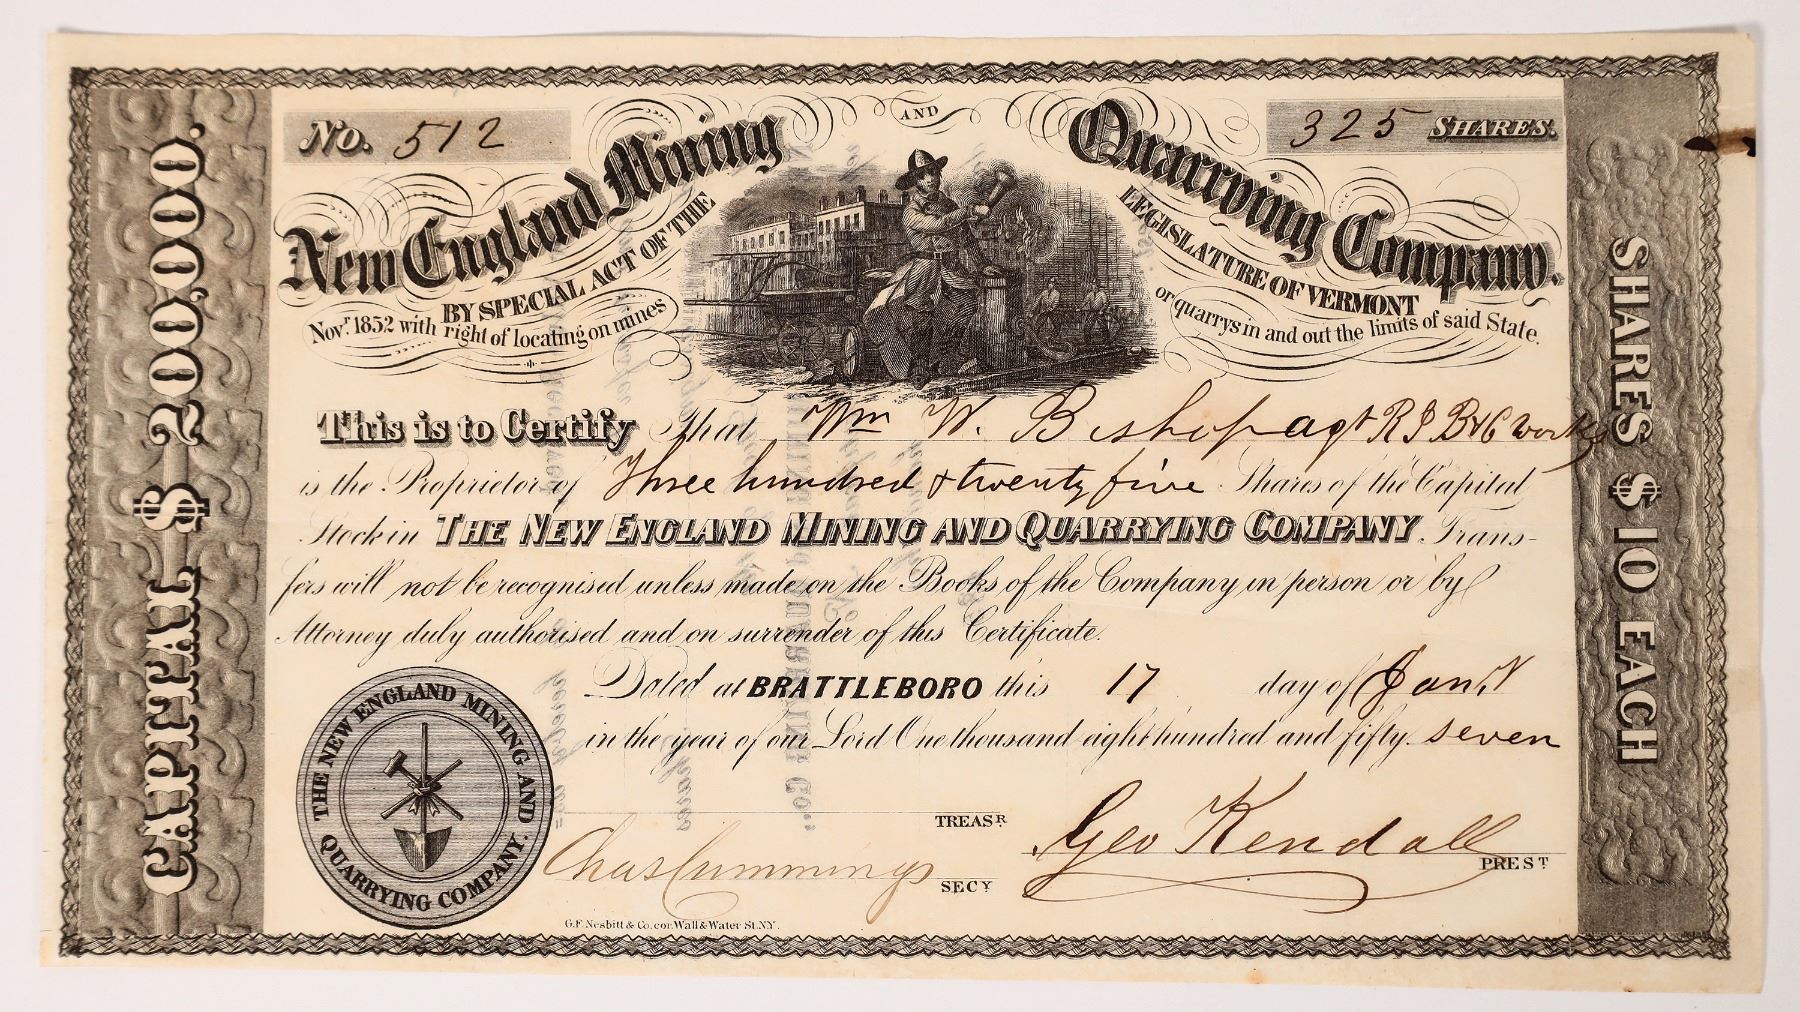 No. 512
325 SHARES.
New England Mining AND Quarrying Company.
BY SPECIAL ACT OF THE LEGISLATURE OF VERMONT
Novr. 1852 with right of locating on mines or quarrys in and out the limits of said State.
CAPITAL $ 200,000.
This is to Certify That Wm W. Bishop agt R I B & C Works
is the Proprietor of Three hundred & twenty five Shares of the Capital
Stock in THE NEW ENGLAND MINING AND QUARRYING COMPANY. Trans-
fers will not be recognised unless made on the Books of the Company in person or by
Attorney duly authorised and on surrender of this Certificate.
Dated at BRATTLEBORO this 17 day of Jany
in the year of our Lord One thousand eight hundred and fifty. seven
THE NEW ENGLAND MINING AND QUARRYING COMPANY.
TREASR.
Chas Cummings SECY.
Geo Kendall PREST.
G.F. Nesbitt & Co. cor. Wall & Water St. N.Y.
SHARES $ 10 EACH